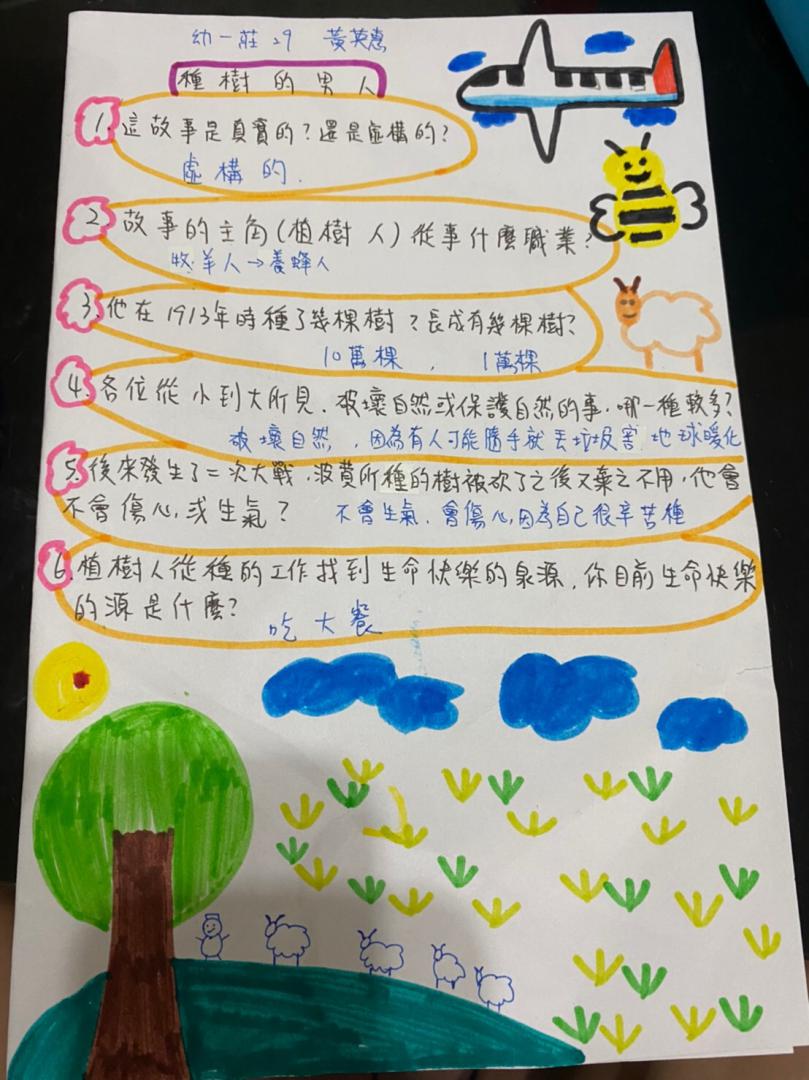 幼一莊 29 黃英惠
種樹的男人
1. 這故事是真實的?還是虛構的?
虛構的.
2. 故事的主角(植樹人)從事什麼職業?
牧羊人→養蜂人
3. 他在1913年時種了幾棵樹?長成有幾棵樹?
10萬棵, 1萬棵
4. 各位從小到大所見.破壞自然或保護自然的事,哪一種較多?
破壞自然,因為有人可能隨手就丟垃圾害地球暖化
5. 後來發生了二次大戰,波費所種的樹被砍了之後又棄之不用,他會
不會傷心,或生氣? 不會生氣.會傷心,因為自己很辛苦種
6. 植樹人從種的工作找到生命快樂的泉源,你目前生命快樂
的源是什麼?
吃大餐